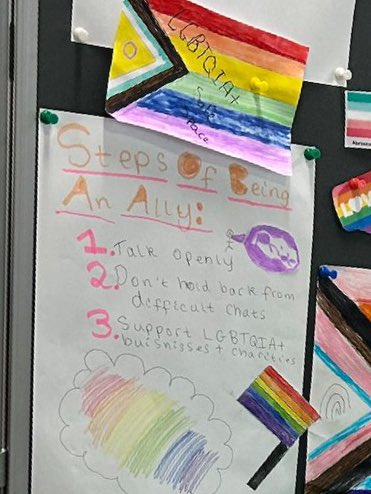 LGBTQIA+
Safe
Place
Steps Of Being
An Ally:
1. Talk openly
2. Don't hold back from
difficult chats
3. Support LGBTQIA+
buisnisses + charities
LOVE